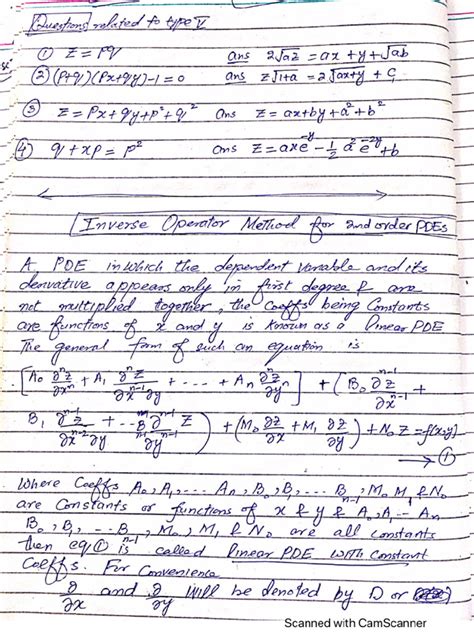 Questions related to type V
① z = pq ans 2√az = ax + y + √ab
② (p+q)(px+qy)-1=0 ans z√1+a = 2√ax+y + C₁
③ z = px+qy+p²+q² ans z = ax+by+a²+b²
④ q + xp = p² ans z = axe^-y - 1/2 a² e^-2y + b
Inverse Operator Method for 2nd order PDEs
A PDE in which the dependent variable and its
derivative appears only in first degree & are
not multiplied together, the Coeffs being Constants
are functions of x and y is known as a linear PDE
The general form of such an equation is
[A₀ ∂ⁿz/∂xⁿ + A₁ ∂ⁿz/∂xⁿ⁻¹∂y + .... + Aₙ ∂ⁿz/∂yⁿ] + (B₀ ∂ⁿ⁻¹z/∂xⁿ⁻¹ +
B₁ ∂ⁿ⁻¹z/∂xⁿ⁻²∂y + ... B ∂ⁿ⁻¹z/∂yⁿ⁻¹) + (M₀ ∂z/∂x + M₁ ∂z/∂y) + N₀z = f(x,y)
→ ①
Where Coeffs A₀, A₁, ... Aₙ, B₀, B₁, ... Bₙ₋₁, M₀ M₁ & N₀
are Constants or functions of x & y & A₀ A₁ - Aₙ
B₀, B₁, -- Bₙ₋₁, M₀, M₁ & N₀ are all constants
then eq ① is called linear PDE with Constant
Coeffs. For Convenience
∂/∂x and ∂/∂y will be denoted by D or
Scanned with CamScanner